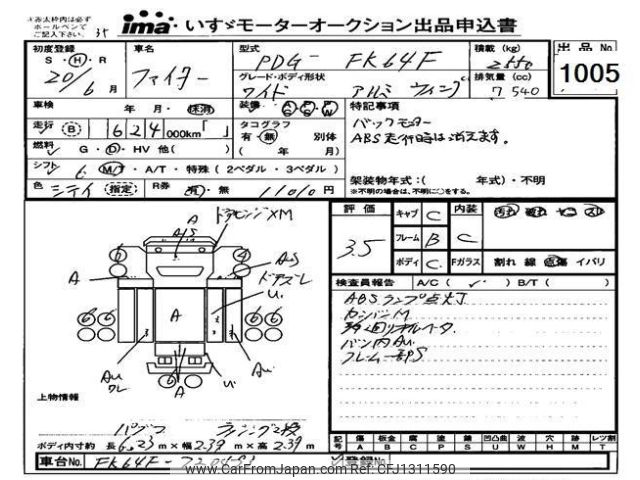 ※赤太枠内は必ず
ボールペンで
ご記入下さい。
ima いすゞモーターオークション出品申込書
初度登録 S・H・R 20/6 月
車名 ファイター
型式 PDG- FK64F
グレード・ボディ形状 ワイド アルミ ウィング
積載 (kg)
排気量 (cc) 7540
出品 No 1005
車検 年 月・抹消
走行 (B) 624000km「 」
燃料 G・D・HV 他( )
シフト 6 M/T・A/T・特殊(2ペダル・3ペダル)
色 シティ (指定) R券 有・無 11010 円
装備
タコグラフ 有・無 別体
( 年 月)
特記事項
バックモニター
ABS走行時は消えます。
架装物年式:( 年式)・不明
※不明の場合は、不明に○をする。
評価 3.5
キャブ C
フレーム B
ボディ C
内装 C
Fガラス 割れ 線 飛傷 イバリ
検査員報告 A/C ( ✓ ) B/T ( )
ABSランプ点灯
カンバンM
バン内Au.
フレーム一部S
ドアヒンジXM
A
A/S
A
AS
ドアズレ
U.
A
Au
クレ
Au
U.
上物情報
パブコ
ボディ内寸約 長 6.23 m×幅 2.39 m×高 2.39 m
記号 傷 A 板金 B 腐 C 塗 P 錆 S 凹凸曲 U 波 W 穴 H 跡 M レツ割 T
車台No. FK64F-
登録No.
www.CarFromJapan.com Ref: CFJ1311590